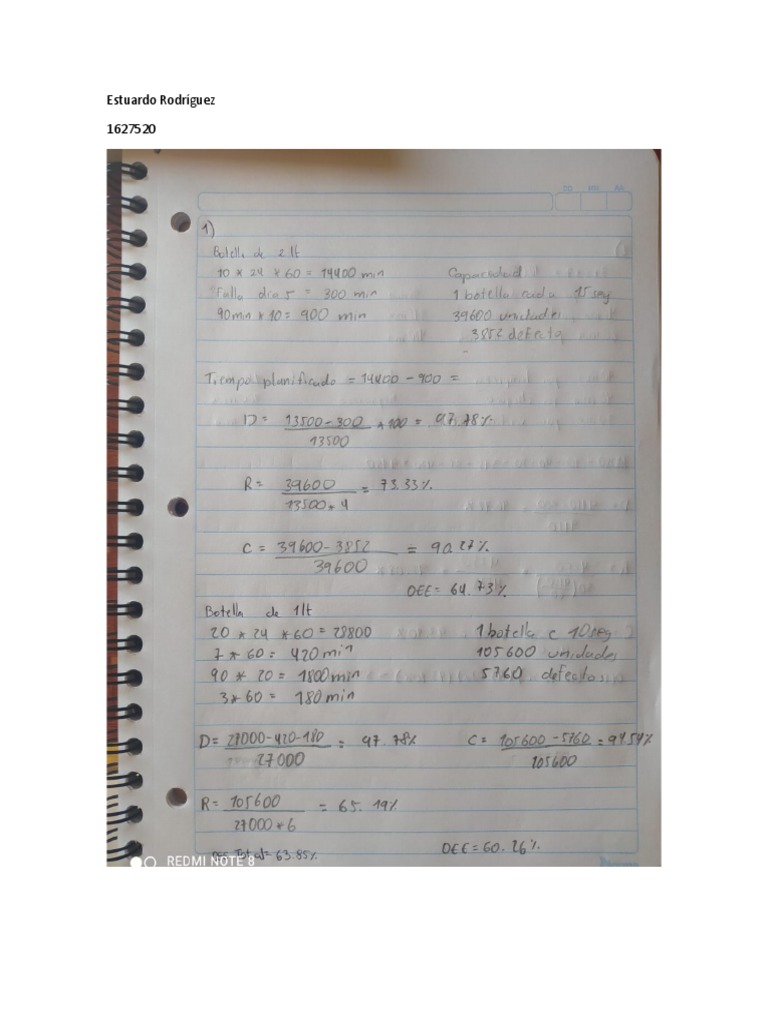 Estuardo Rodríguez
1627520
DD MM AA
1)
Botella de 2 lt
10 * 24 * 60 = 14400 min Capacidad
Falla dia 5 = 300 min 1 botella cada 15 seg
90 min * 10 = 900 min 39600 unidades
3852 defecto
Tiempo planificado = 14400 - 900 =
D = 13500 - 300 / 13500 * 100 = 97.78%
R = 39600 / 13500 * 4 = 73.33%
C = 39600 - 3852 / 39600 = 90.27%
OEE = 64.73%
Botella de 1 lt
20 * 24 * 60 = 28800 1 botella c 10 seg
7 * 60 = 420 min 105600 unidades
90 * 20 = 1800 min 5760 defectos
3 * 60 = 180 min
D = 27000 - 420 - 180 / 27000 = 97.78% C = 105600 - 5760 / 105600 = 94.54%
R = 105600 / 27000 * 6 = 65.19%
OEE Total = 63.85% OEE = 60.26%
REDMI NOTE 8